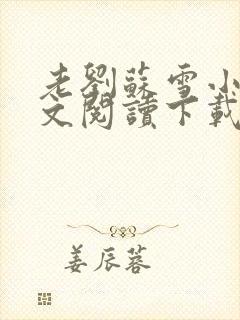 老劉蘇雪小
文閱讀下載
姜辰蓉